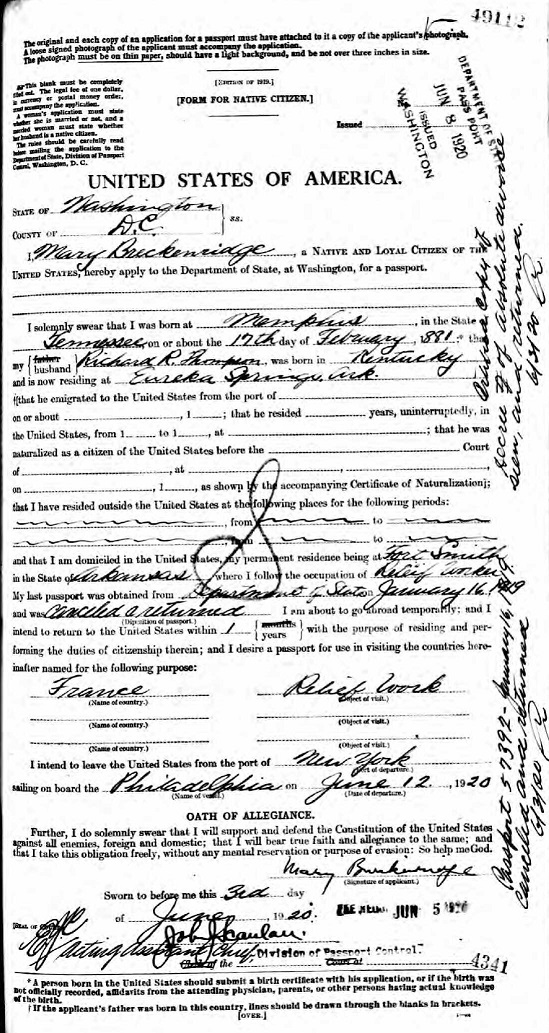 49112
The original and each copy of an application for a passport must have attached to it a copy of the applicant's photograph.
A loose signed photograph of the applicant must accompany the application.
The photograph must be on thin paper, should have a light background, and be not over three inches in size.
This blank must be completely
filled out. The legal fee of one dollar,
in currency or postal money order,
must accompany the application.
A woman's application must state
whether she is married or not, and a
married woman must state whether
her husband is a native citizen.
The rules should be carefully read
before mailing the application to the
Department of State, Division of Passport
Control, Washington, D. C.
[EDITION OF 1919.]
[FORM FOR NATIVE CITIZEN.]
Issued
DEPARTMENT OF STATE
PASSPORT
JUN 8 1920
ISSUED
WASHINGTON
UNITED STATES OF AMERICA.
STATE OF Washington
COUNTY OF D.C. } ss.
I, Mary Breckenridge, a NATIVE AND LOYAL CITIZEN OF THE
UNITED STATES, hereby apply to the Department of State, at Washington, for a passport.
I solemnly swear that I was born at Memphis, in the State of
Tennessee, on or about the 17th day of February, 1881; that
my {father husband} Richard R. Thompson, was born in Kentucky
and is now residing at Eureka Springs, Ark.
[that he emigrated to the United States from the port of
on or about , 1 ; that he resided years, uninterruptedly, in
the United States, from 1 to 1 , at ; that he was
naturalized as a citizen of the United States before the Court
of , at ,
on , 1 , as shown by the accompanying Certificate of Naturalization];
that I have resided outside the United States at the following places for the following periods:
, from to
, from to
and that I am domiciled in the United States, my permanent residence being at Fort Smith
in the State of Arkansas, where I follow the occupation of Relief Worker
My last passport was obtained from Department of State on January 16, 1919
and was canceled & returned I am about to go abroad temporarily; and I
(Disposition of passport.)
intend to return to the United States within 1 {months years} with the purpose of residing and per-
forming the duties of citizenship therein; and I desire a passport for use in visiting the countries here-
inafter named for the following purpose:
France Relief Work
(Name of country.) (Object of visit.)
(Name of country.) (Object of visit.)
(Name of country.) (Object of visit.)
I intend to leave the United States from the port of New York
(Port of departure.)
sailing on board the Philadelphia on June 12, 1920
(Name of vessel.) (Date of departure.)
OATH OF ALLEGIANCE.
Further, I do solemnly swear that I will support and defend the Constitution of the United States
against all enemies, foreign and domestic; that I will bear true faith and allegiance to the same; and
that I take this obligation freely, without any mental reservation or purpose of evasion: So help me God.
Mary Breckenridge
(Signature of applicant.)
Sworn to before me this 3rd day
of June, 1920.
JUN 5 1920
John J. Scanlan
Acting Assistant Chief, Division of Passport Control.
4341
* A person born in the United States should submit a birth certificate with his application, or if the birth was
not officially recorded, affidavits from the attending physician, parents, or other persons having actual knowledge
of the birth.
† If the applicant's father was born in this country, lines should be drawn through the blanks in brackets.
[OVER.]
Copy of
decree of absolute divorce
seen, and returned
6/3/20
Passport 57392 - January 16, 1919
canceled and returned
6/3/20